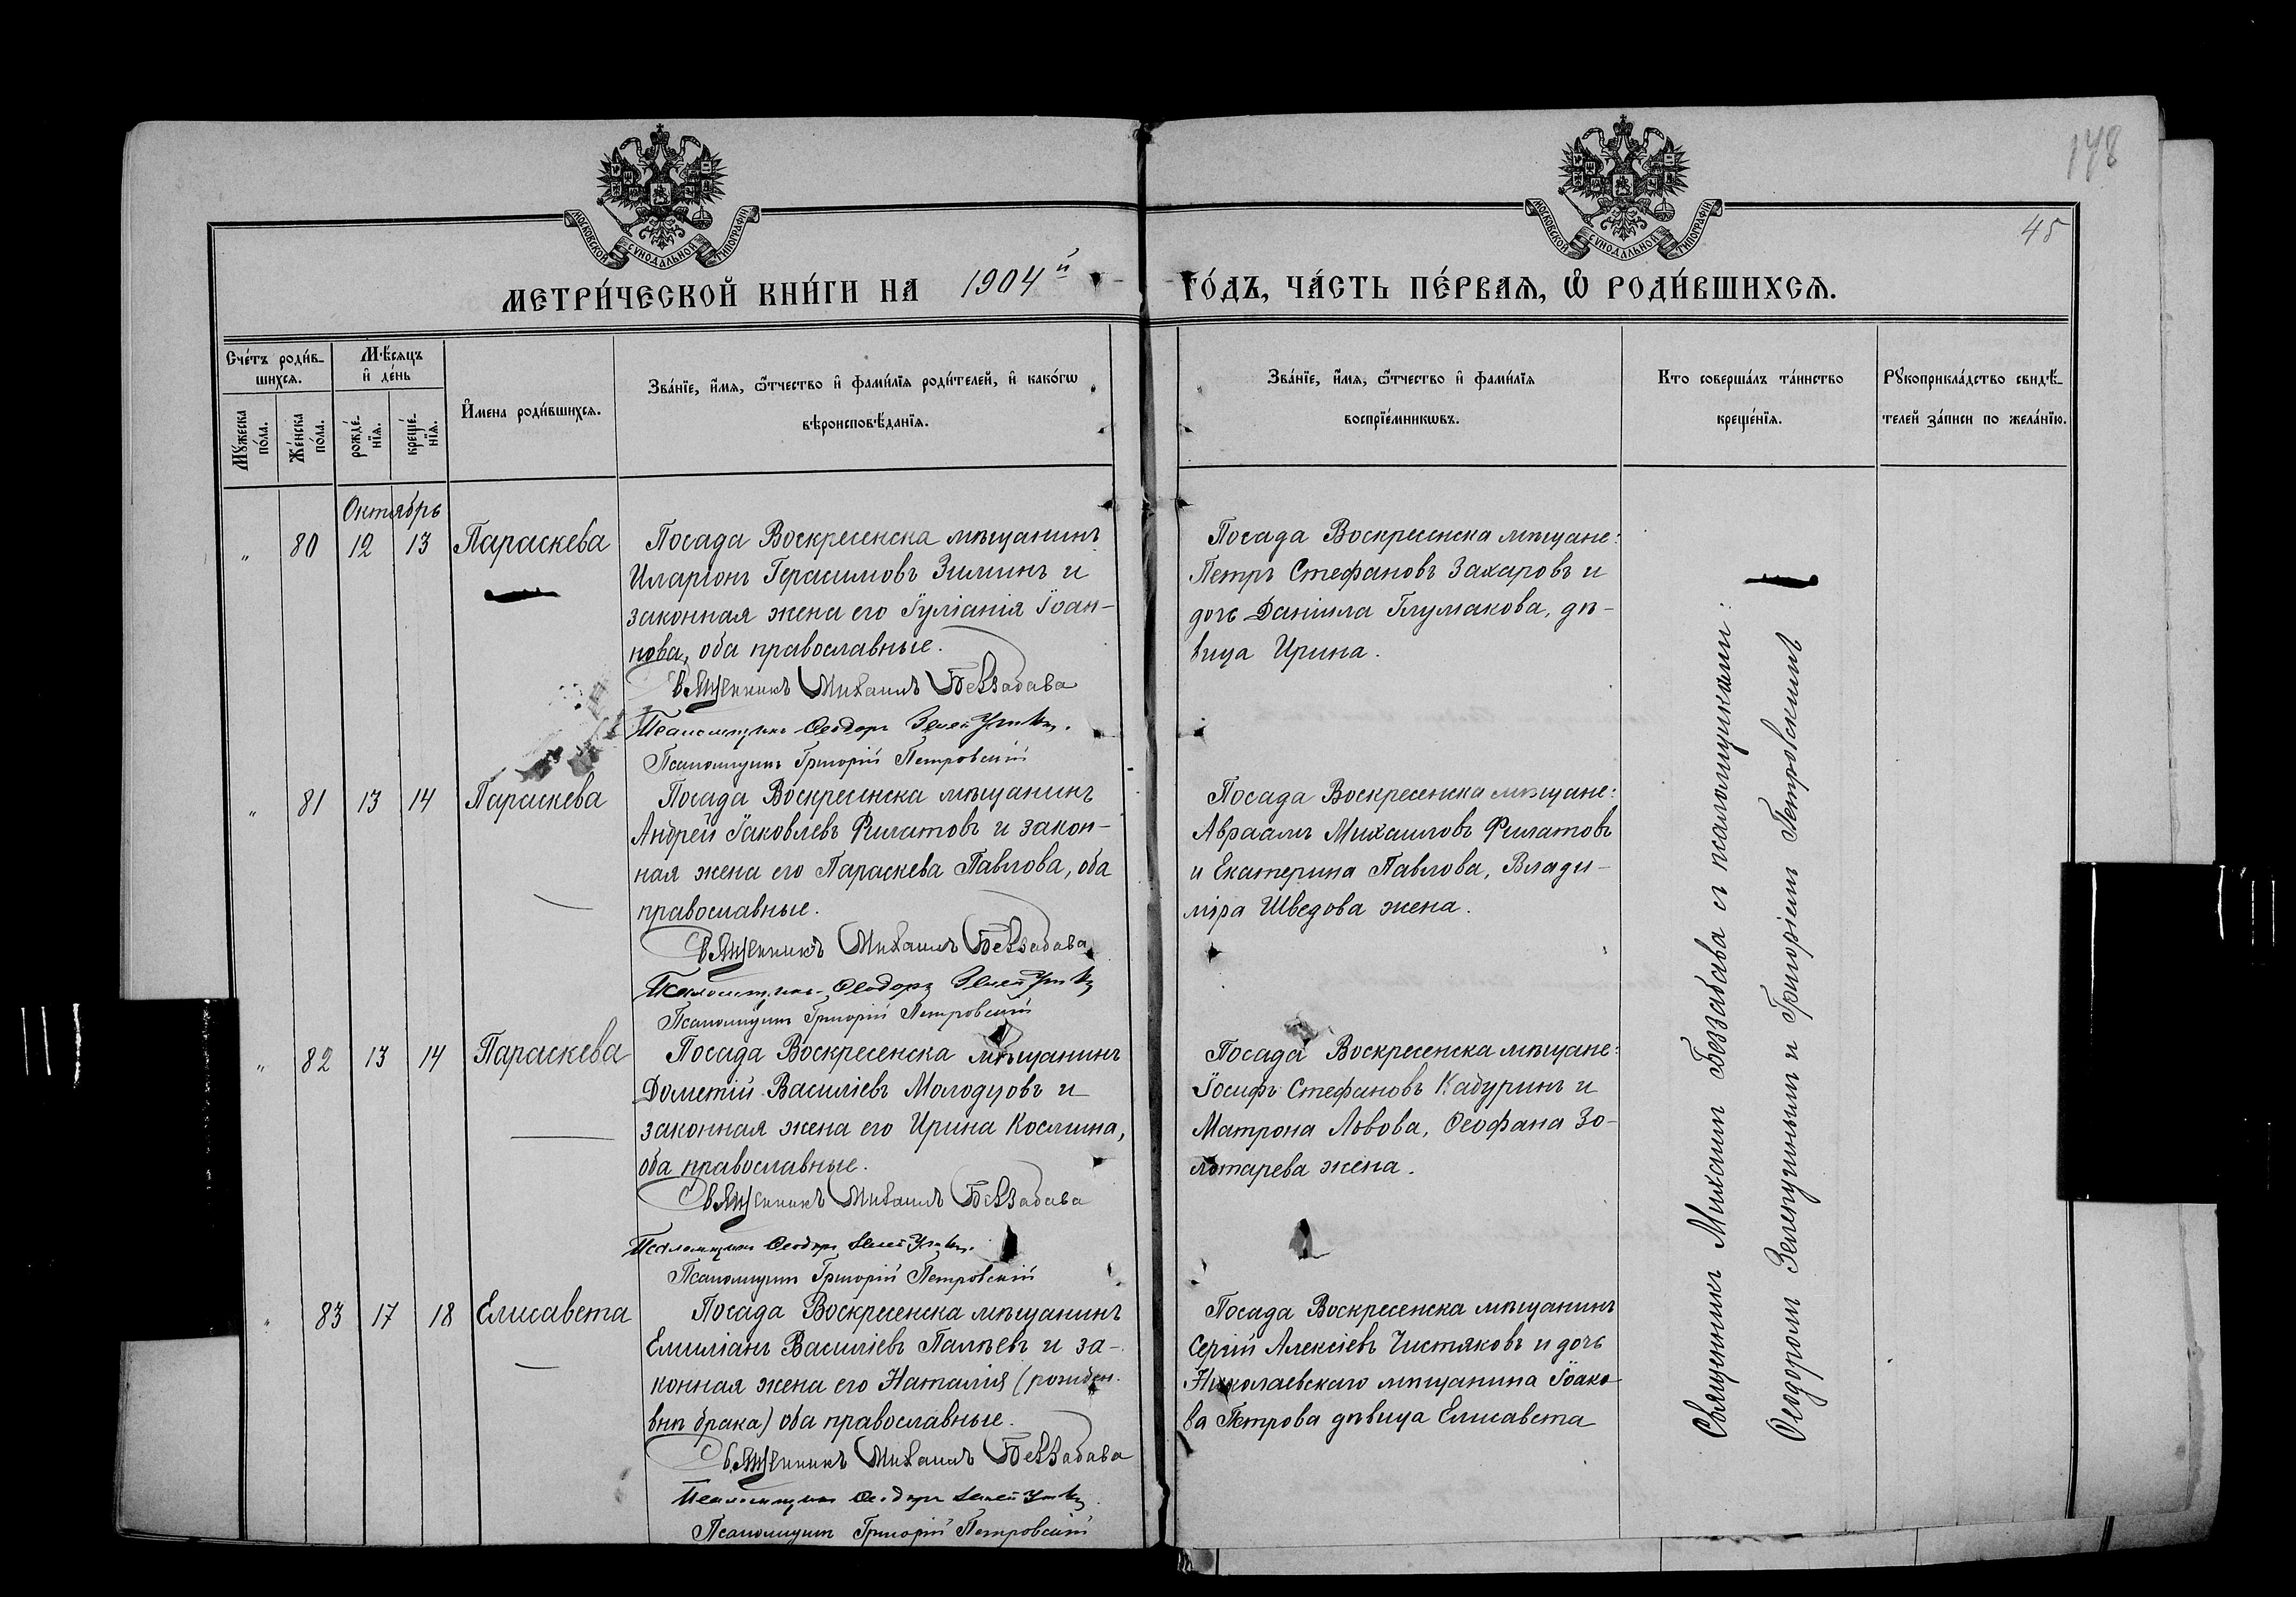 178
45
МОСКОВСКОЙ СѴНОДАЛЬНОЙ ТИПОГРАФІИ
МОСКОВСКОЙ СѴНОДАЛЬНОЙ ТИПОГРАФІИ
МЕТРИ́ЧЕСКОЙ КНИ́ГИ НА 1904й ГО́ДЪ, ЧА́СТЬ ПЕ́РВАѦ, Ѡ҆ РОДИ́ВШИХСѦ.
Сче́тъ роди́в-
шихсѧ.
Мꙋ́жеска по́ла.
Же́нска по́ла.
Мѣ́сѧцъ
и҆ де́нь
рожде́-
нїѧ.
креще́-
нїѧ.
И҆́мена роди́вшихсѧ.
Зва́нїе, и҆́мѧ, ѻ҆́тчество и҆ фами́лїѧ роди́телей, и҆ како́гѡ
вѣроисповѣ́данїѧ.
Зва́нїе, и҆́мѧ, ѻ҆́тчество и҆ фами́лїѧ
воспрїе́мникѡвъ.
Кто соверша́лъ та́инство
креще́нїѧ.
Рꙋкоприкла́дство свидѣ́-
телей за́писи по жела́нїю.
Октябрь
" 80 12 13 Параскева
Посада Воскресенска мѣщанинъ
Иларіонъ Герасимовъ Зиминъ и
законная жена его Іуліанія Іоан-
нова, оба православные.
Священникъ Михаилъ Беззабава
Псаломщикъ Ѳеодоръ
Псаломщикъ Григорій Петровскій
Посада Воскресенска мѣщане:
Петръ Стефановъ Захаровъ и
дочь Даніила Глумакова, дѣ-
вица Ирина.
" 81 13 14 Параскева
Посада Воскресенска мѣщанинъ
Андрей Іаковлевъ Филатовъ и закон-
ная жена его Параскева Павлова, оба
православные.
Священникъ Михаилъ Беззабава
Псаломщикъ Ѳеодоръ
Псаломщикъ Григорій Петровскій
Посада Воскресенска мѣщане:
Авраамъ Михаиловъ Филатовъ
и Екатерина Павлова, Влади-
міра Шведова жена.
" 82 13 14 Параскева
Посада Воскресенска мѣщанинъ
Дометій Василіевъ Молодцовъ и
законная жена его Ирина Космина,
оба православные.
Священникъ Михаилъ Беззабава
Псаломщикъ Ѳеодоръ
Псаломщикъ Григорій Петровскій
Посада Воскресенска мѣщане:
Іосифъ Стефановъ Кадуринъ и
Матрона Львова, Ѳеофана Зо-
лотарева жена.
" 83 17 18 Елисавета
Посада Воскресенска мѣщанинъ
Емиліанъ Василіевъ Палѣевъ и за-
конная жена его Наталія (рожден.
внѣ брака) оба православные.
Священникъ Михаилъ Беззабава
Псаломщикъ Ѳеодоръ
Псаломщикъ Григорій Петровскій
Посада Воскресенска мѣщанинъ
Сергій Алексіевъ Чистяковъ и дочь
Николаевскаго мѣщанина Іоако-
ва Петрова дѣвица Елисавета
Священникъ Михаилъ Беззабава съ псаломщиками:
Ѳеодоромъ и Григоріемъ Петровскимъ